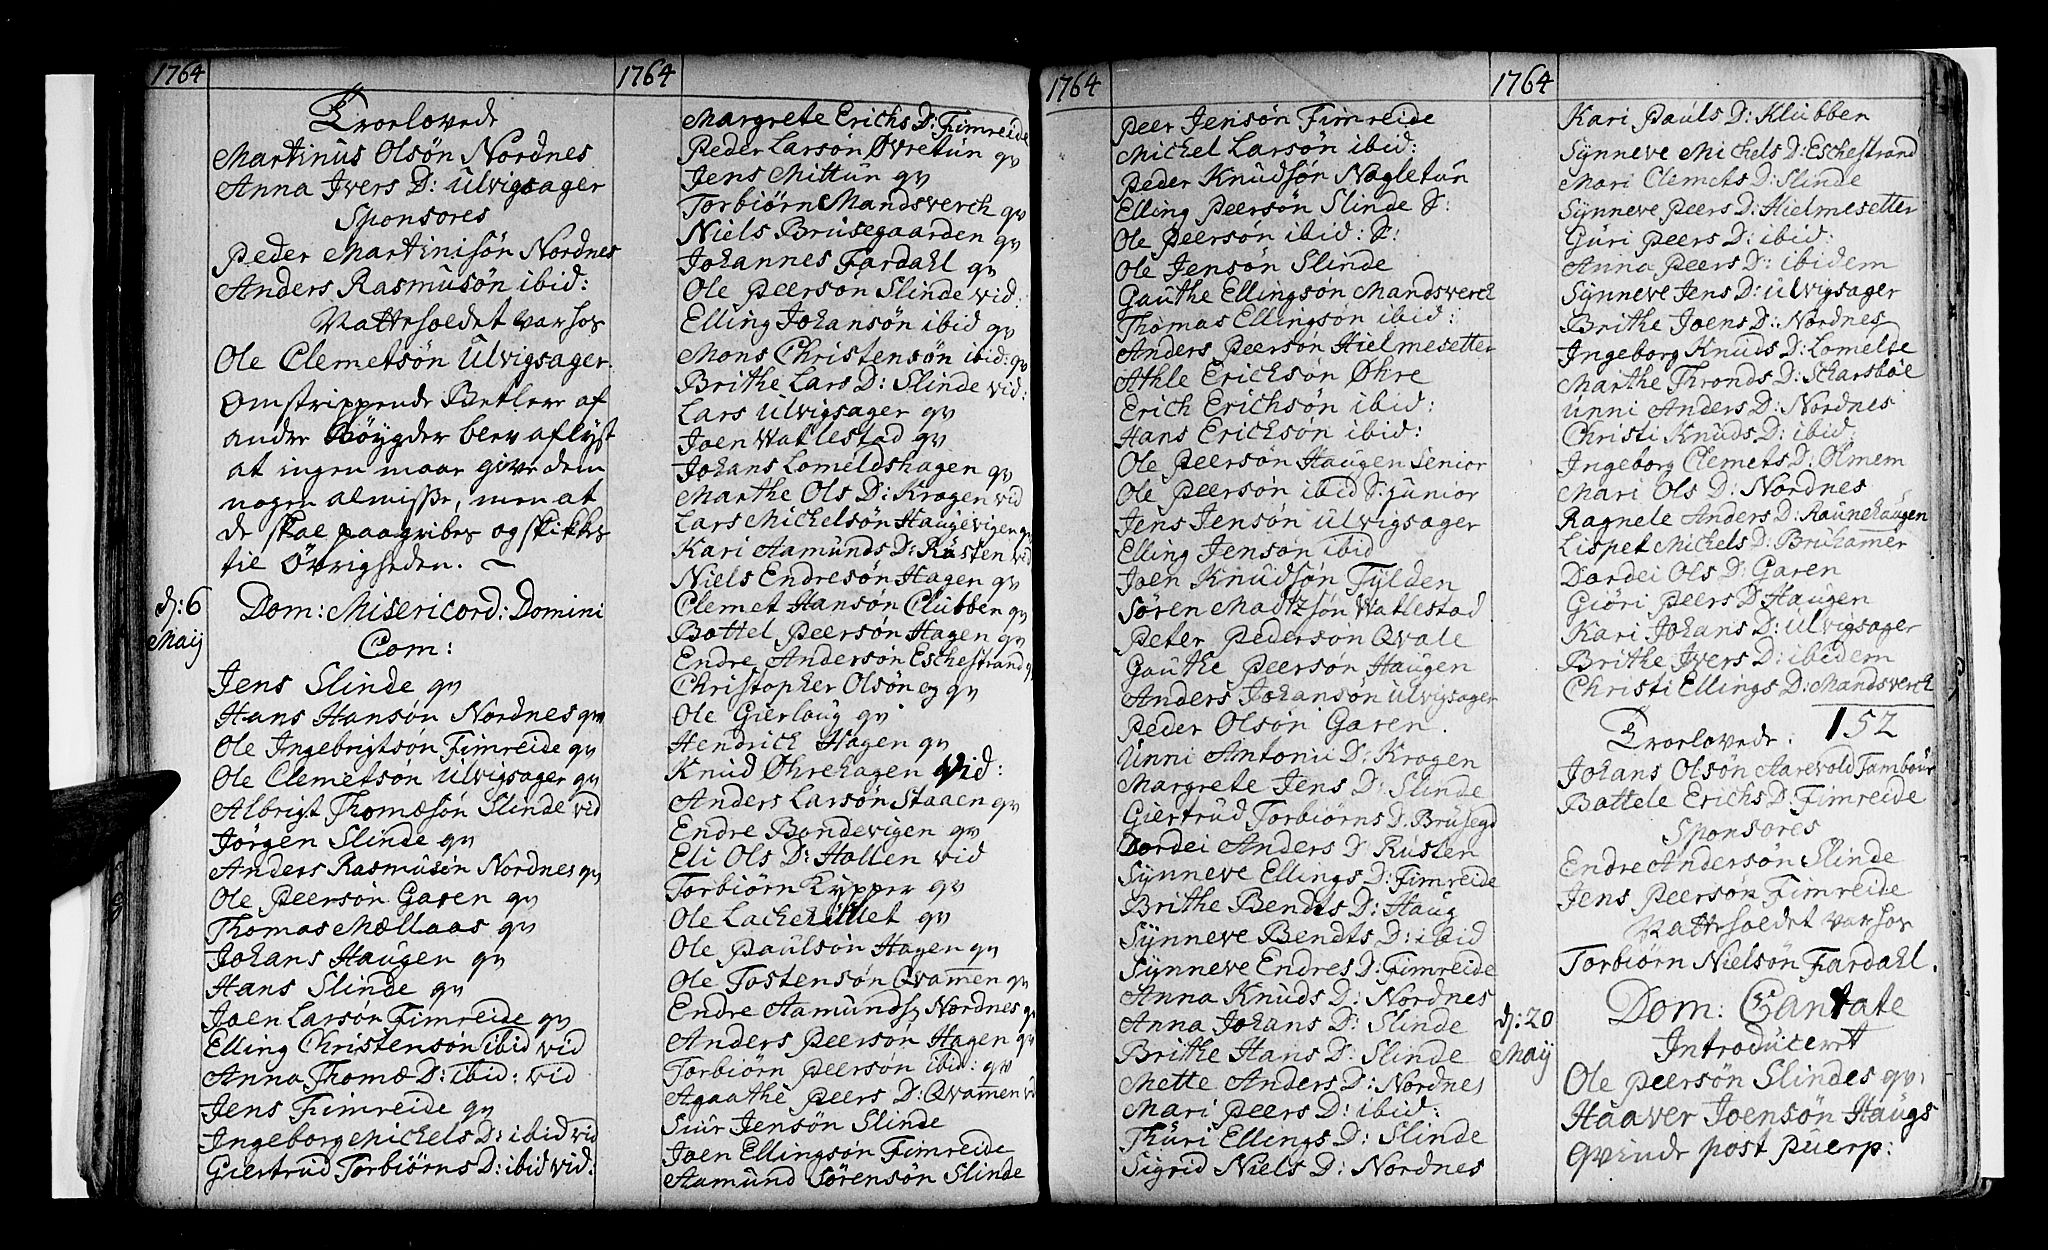 1764
Troelovede
Martinus Olsøn Nordnes
Anna Ivers D: Ulvigsager
Sponsores
Peder Martinisøn Nordnes
Anders Rasmusøn ibid:
Natteholdet var hos
Ole Clemetsøn Ulvigsager.
Omstrippende Betlere af
andre Bøygder blev aflyst
at ingen maae give dem
nogen almisse, men at
de skal paagribes og skikkes
til Øvrigheden. ~
d: 6 May
Dom: Misericord: Domini
Com:
Jens Slinde qv
Hans Hansøn Nordnes qv
Ole Ingebrigtsøn Fimreide qv
Ole Clemetsøn Ulvigsager qv
Albrigt Thomæsøn Slinde vid
Jørgen Slinde qv
Anders Rasmusøn Nordnes qv
Ole Peersøn Garen qv
Thomas Mællaas qv
Johans Haugen qv
Hans Slinde qv
Joen Larsøn Fimreide qv
Elling Christensøn ibid vid
Anna Thomæ D: ibid: vid
Jens Fimreide qv
Ingeborg Michels D: ibid vid
Giertrud Torbiørns D: ibid vid:
1764
Margrete Erichs D: Fimreide
Peder Larsøn Øvretun qv
Jens Mittun qv
Torbiørn Mandsverch qv
Niels Brusegaarden qv
Johannes Fardahl qv
Ole Peersøn Slinde vid
Elling Johansøn ibid qv
Mons Christensøn ibid: qv
Brithe Lars D: Slinde vid:
Lars Ulvigsager qv
Joen Watlestad qv
Johans Lomeldshagen qv
Marthe Ols D: Krogen vid
Lars Michelsøn Haugevigen qv
Kari Aamunds D: Rusten vid
Niels Endresøn Hagen qv
Clemet Hansøn Clubben qv
Bottel Peersøn Hagen qv
Endre Andersøn Eschestrand q
Christopher Olsøn eg qv
Ole Gierlaug qv
Hendrich Hagen qv
Knud Øhrehagen vid:
Anders Larsøn Staaen qv
Endre Bondevigen qv
Eli Ols D: Hallen vid
Torbiørn Kypper qv
Ole Lachekillet qv
Ole Paulsøn Hagen qv
Ole Tostensøn Qvamen qv
Endre Aamunds. Nordnes q
Anders Peersøn Hagen qv
Torbiørn Peersøn ibid: qv
Agaathe Peers D: Qvamen vid
Siur Jensøn Slinde
Joen Ellingsøn Fimreide
Aamund Sørensøn Slinde
1764
Peer Jensøn Fimreide
Michel Larsøn ibid:
Peder Knudsøn Nagletun
Elling Peersøn Slinde S:
Ole Peersøn ibid: S:
Ole Jensøn Slinde
Gauthe Ellingsøn Mandsverch
Thomas Ellingsøn ibid:
Anders Peersøn Hielmesetter
Athle Ericksøn Øhre
Erich Erichsøn ibid:
Hans Ericksøn ibid:
Ole Peersøn Haugen Senior
Ole Peersøn ibid S: junior
Jens Jensøn Ulvigsager
Elling Jensøn ibid
Joen Knudsøn Fylden
Søren Madtzsøn Watlestad
Peter Pedersøn Qvale
Gauthe Peersøn Haugen
Anders Johansøn Ulvigsager
Peder Olsøn Garen.
Unni Antonii D: Krogen
Margrete Jens D: Slinde
Giertrud Torbiørns D: Brusegd
Dordei Anders D: Rusten
Synneve Ellings D: Fimreide
Brithe Bendts D: Haug
Synneve Bendts D: ibid
Synneve Endres D: Fimreide
Anna Knuds D: Nordnes
Anna Johans D: Slinde
Brithe Hans D: Slinde
Mette Anders D: Nordnes
Mari Peers D: ibid:
Thuri Ellings D: Slinde
Sigrid Niels D: Nordnes
1764
Kari Pauls D: Klubben
Synneve Michels D: Eschestrand
Mari Clemets D: Slinde
Synneve Peers D: Hielmesetter
Guri Peers D: ibid:
Anna Peers D: ibidem
Synneve Jens D: Ulvigsager
Brithe Joens D: Nordnes
Ingeborg Knuds D: Lomelde
Marthe Thronds D: Scharsbøe
Unni Anders D: Nordnes
Christi Knuds D: ibid.
Ingeborg Clemets D: Olmem
Mari Ols D: Nordnes
Ragnele Anders D: Raunehaugen
Lispet Michels D: Bruhamer
Dordei Ols D: Garen
Giøri Peers D Haugen
Kari Johans D: Ulvigsager
Brithe Ivers D: ibidem
Christi Ellings D: Mandsverch
152
Troelovede:
Johans Olsøn Aarevold Tambour
Battele Erichs D: Fimreide
Sponsores
Endre Andersøn Slinde
Jens Peersøn Fimreide
Natteholdet var hos
Torbiørn Nielsøn Fardahl.
d: 20 May
Dom: Cantate
Introduceret
Ole Peersøn Slindes qv:
Haaver Joensøn Haugs
Qvinde post puerp: